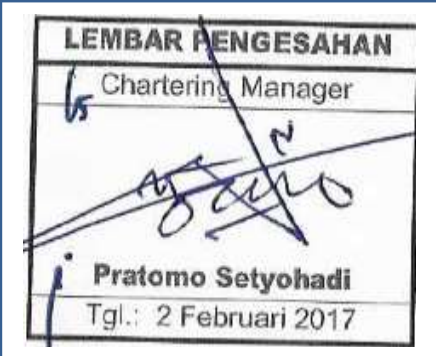 LEMBAR PENGESAHAN
Chartering Manager
Pratomo Setyohadi
Tgl.: 2 Februari 2017